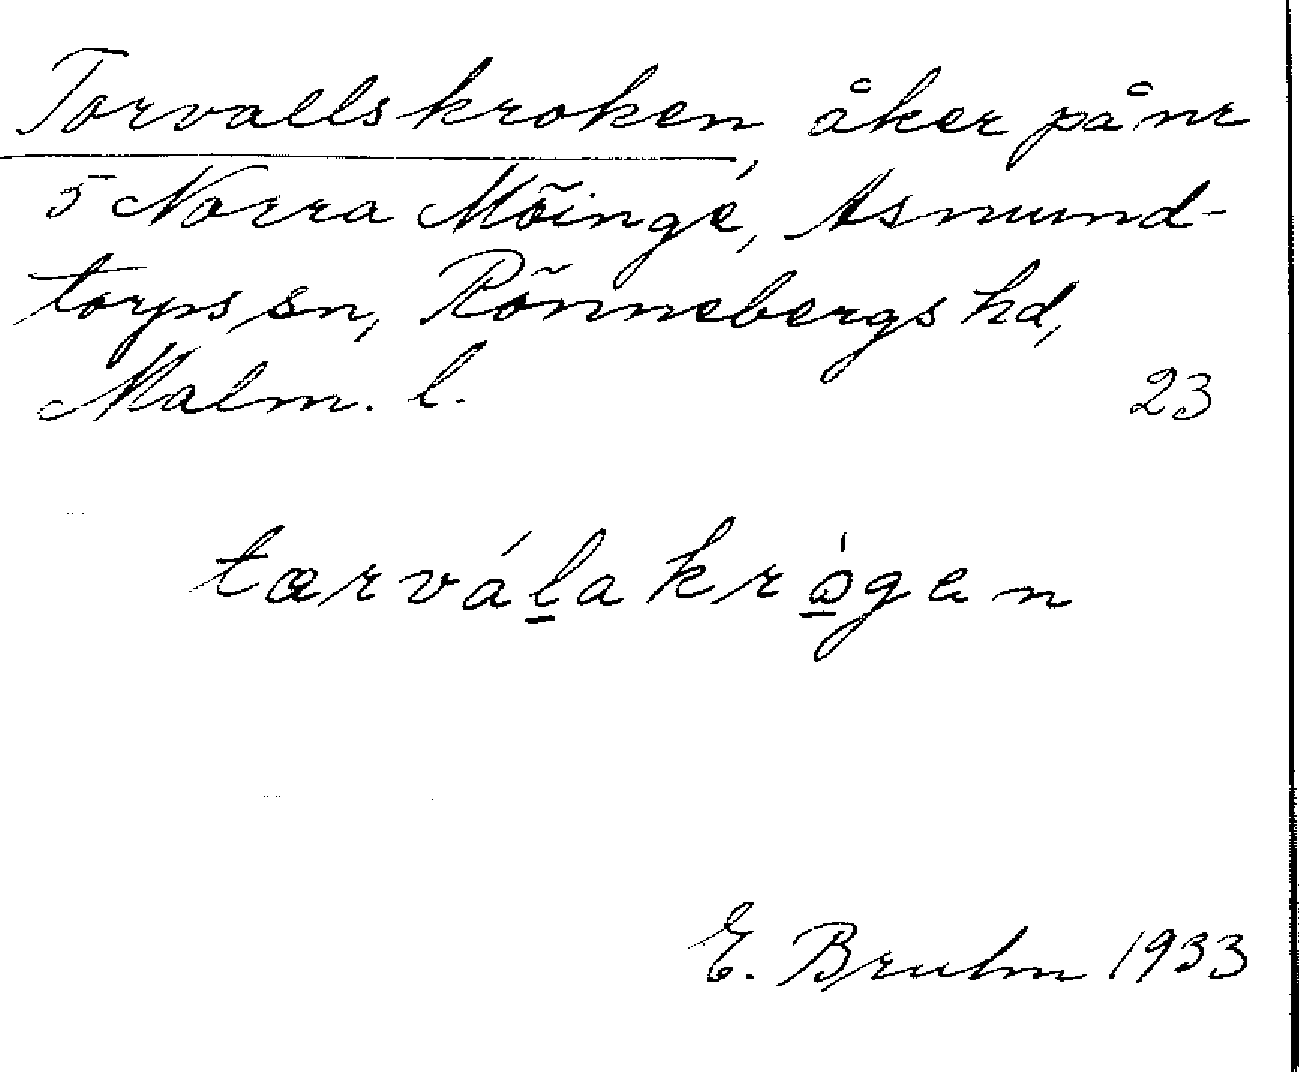 Torvallskroken, åker på nr
5 Norra Möinge, Asmund-
torps sn, Rönnebergs hd,
Malm. l. 23
tærvála krågen
E. Bruhn 1933